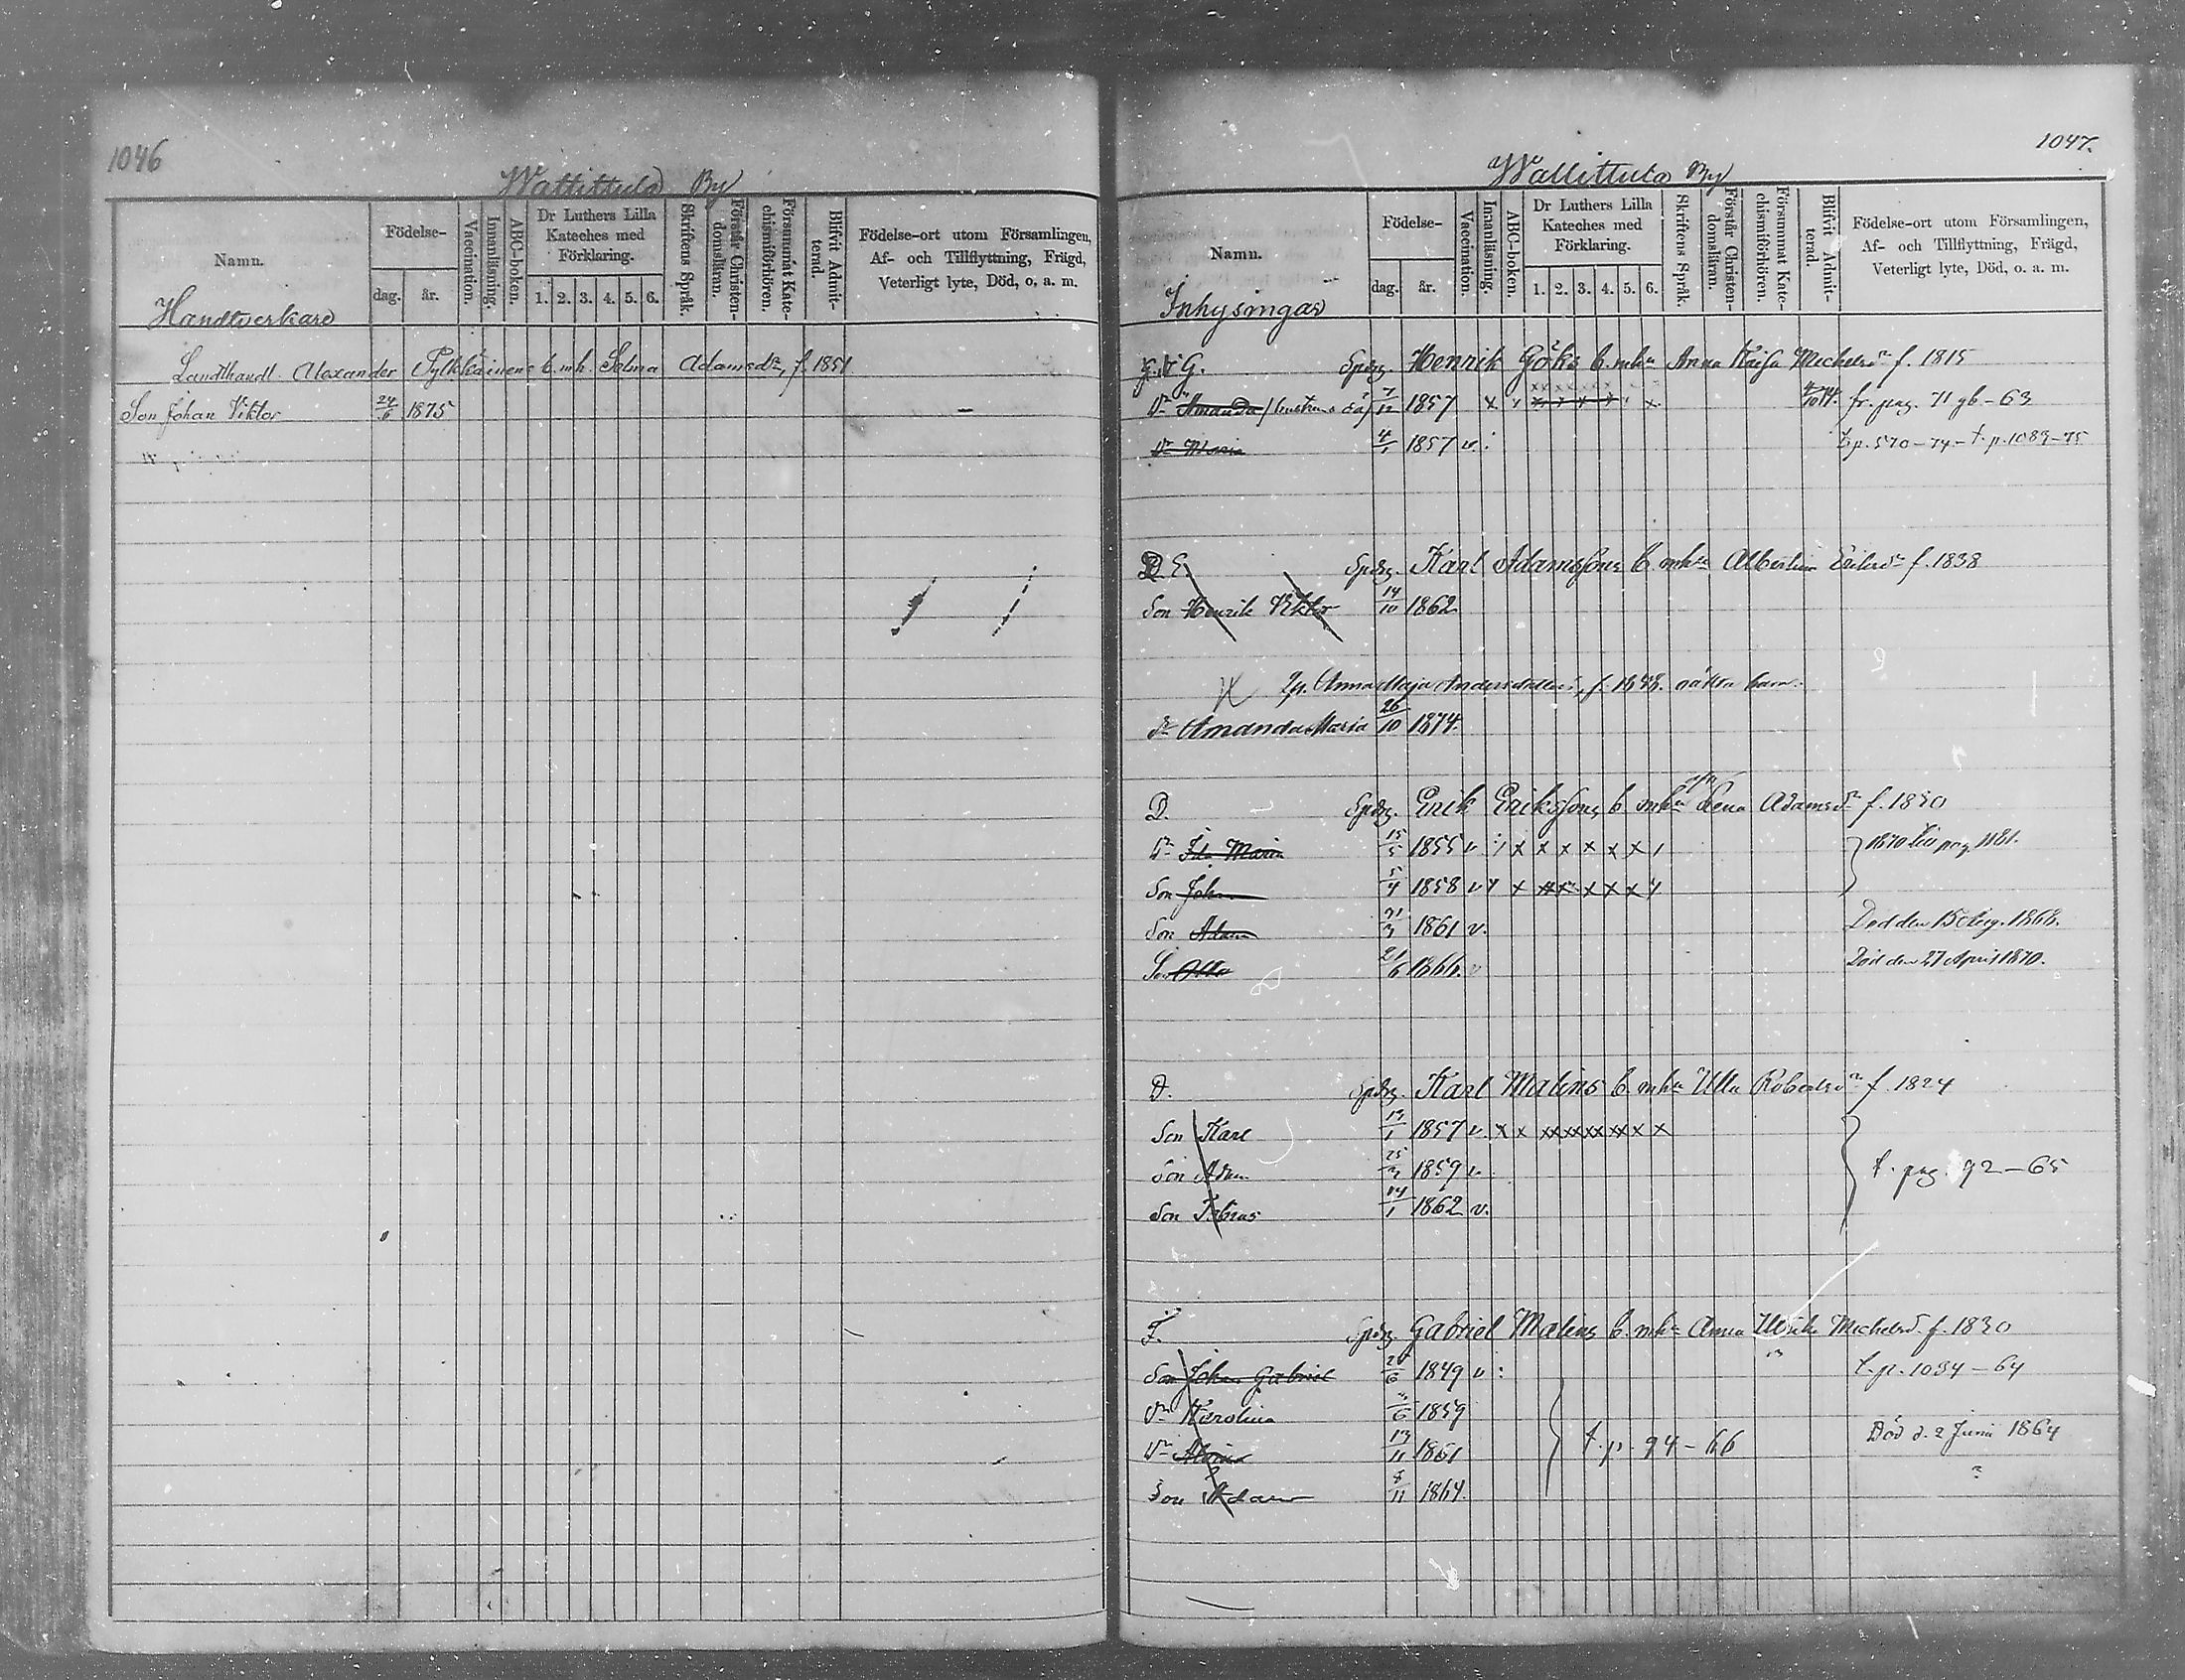 1046
Wattittula By
Namn.
Födelse-
dag. år.
Vaccination.
Innanläsning.
ABC-boken.
Dr Luthers Lilla Kateches med Förklaring.
1. 2. 3. 4. 5. 6.
Skriftens Språk.
Förstår Christendomsläran.
Försummat Katechismiförhören.
Blifvit Admitterad.
Födelse-ort utom Församlingen,
Af- och Tillflyttning, Frägd,
Veterligt lyte, Död, o. a. m.
Handtverkare
Landthandl. Alexander Pylkkäinens b. m h. Selma Adamsdr, f. 1851
Son Johan Viktor 24/6 1875
1047.
Wallittula By
Namn.
Födelse-
dag. år.
Vaccination.
Innanläsning.
ABC-boken.
Dr Luthers Lilla Kateches med Förklaring.
1. 2. 3. 4. 5. 6.
Skriftens Språk.
Förstår Christendomsläran.
Försummat Katechismiförhören.
Blifvit Admitterad.
Födelse-ort utom Församlingen,
Af- och Tillflyttning, Frägd,
Veterligt lyte, Död, o. a. m.
Inhysingar
G. Spdrg. Henrik Göks b. mhu Anna Kaisa Michelsdr f. 1815
Dr Amanda 7/12 1857 x x x x x x fr. pag. 71 gb - 63
Dr Maria 4/1 1857 v. t p. 570 - 74 - t. p. 1089 - 75
D E. Spdrg. Karl Adamssons b. mhu Albertina f. 1838
Son Henrik Viktor 14/10 1862
Anna Maja Andersdotters, f. 1848. oäkta barn.
Dr Amanda Maria 26/10 1874.
D. Spdrg. Erik Erikssons b. mhu Lena Adamsdr f. 1830
Dr Ida Maria 15/5 1855 v x x x x x x 1870 till pag. 1181.
Son Johan 5/4 1858 v x x x x x x
Son Adam 21/3 1861 v. Död den 15 Aug. 1868.
Son Otto 21/6 1866. v Död den 27 April 1870.
D. Spdrg. Karl Malins b. mhu Ulla Robertsdr f. 1824
Son Karl 13/1 1857 v. x x xx xx xx xx x x
Son Adam 25/3 1859 v. t. pag. 92 - 65
Son Tobias 14/1 1862 v.
F. Spdrg. Gabriel Malins b. mhu Anna Ulrika Michelsd. f. 1830
Son Johan Gabriel 1849 v : t. p. 1034 - 64
Dr Karolina 1859
Dr 13/11 1861 t. p. 94 - 66 Död d. 2 Junii 1864
Son Adam 8/11 1864.